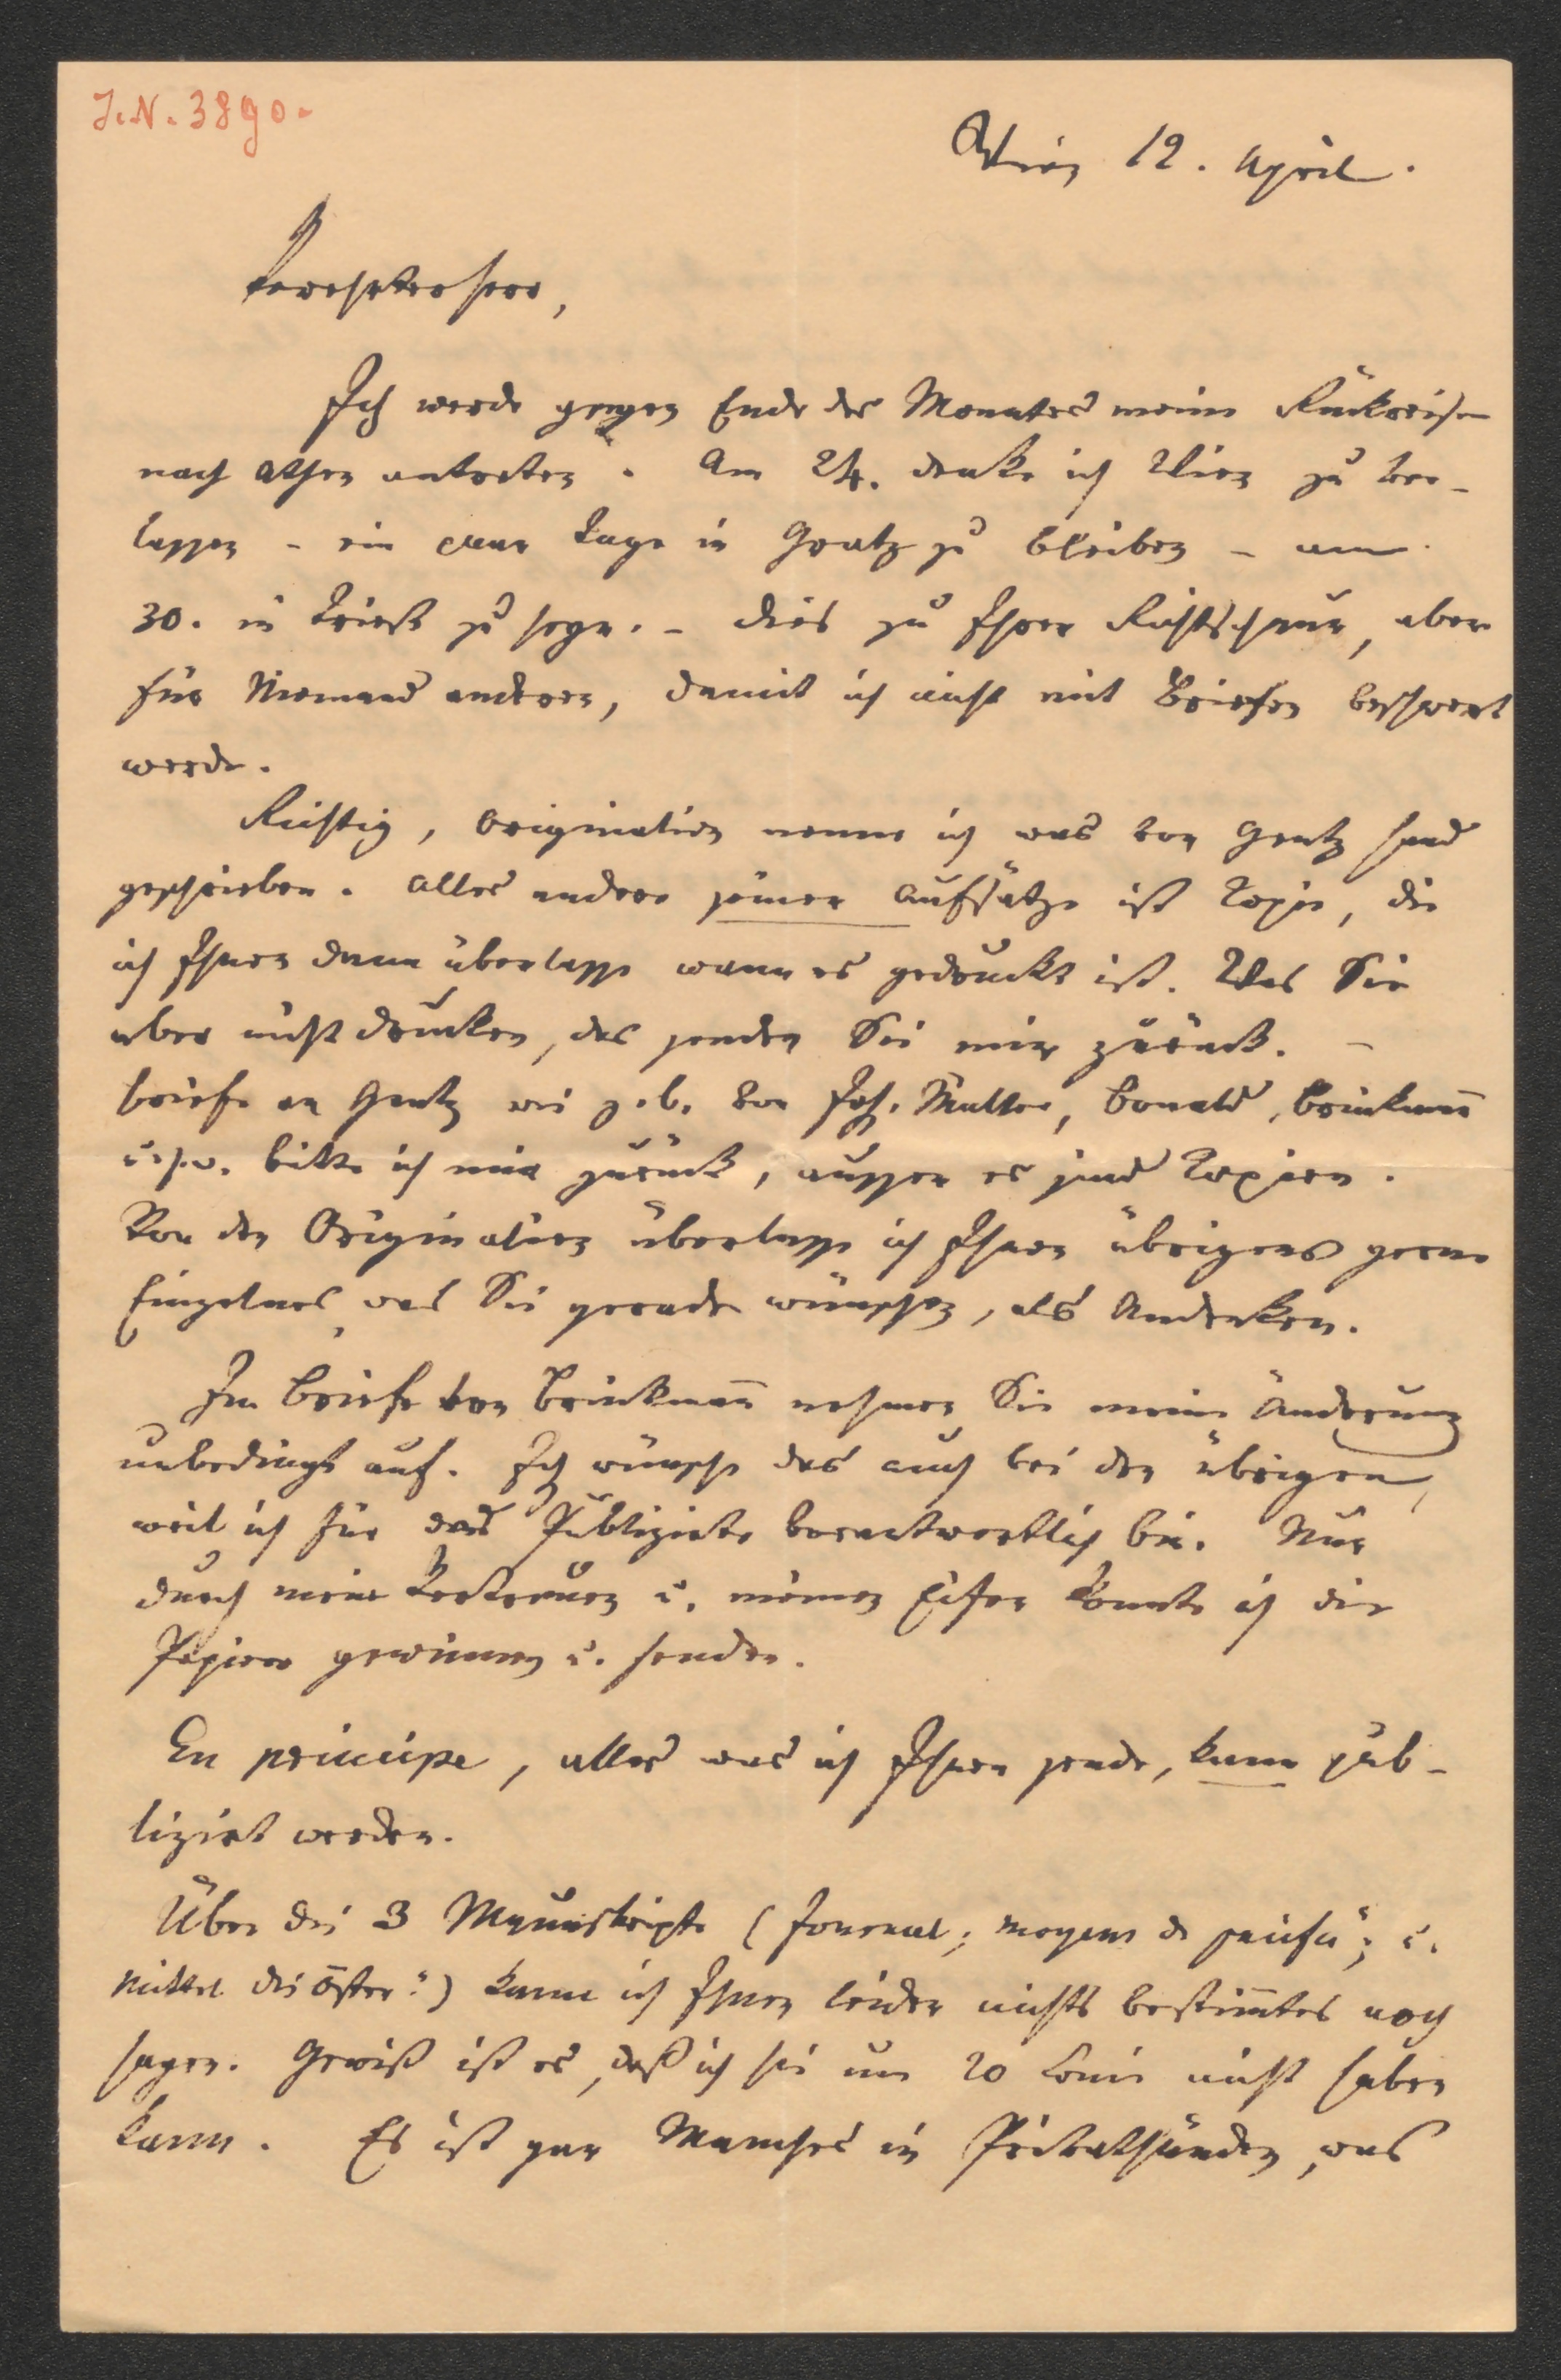 J. N. 3890.
Wien 12. April.
Verehrter Herr,
Ich werde gegen Ende des Monates meine Rückreise
nach Athen antreten. Am 24. denke ich Wien zu ver-
lassen – ein paar Tage in Gratz zu bleiben – am
30. in Triest zu seyn. – Dies zu Ihrer Richtschnur, aber
für Niemand anderen, damit ich nicht mit Briefen beschwert
werde.
Richtig, Originalien nenne ich was von Gentz Hand
geschrieben. Alles andere seiner Aufsätze ist Copie, die
ich Ihnen dann überlasse wann es gedruckt ist. Was Sie
aber nicht drucken, das senden Sie mir zurück. –
Briefe an Gentz wie z. b. von Joh. Müller, Bonald, Brinkmañ
u.s.w. bitte ich mir zurück, ausser es sind Copien.
Von den Originalien überlasse ich Ihnen übrigens gerne
Einzelnes, was Sie gerade wünschen, als Andenken.
Im Briefe von Brinkmañ nehmen Sie meine Änderung
unbedingt auf. Ich wünsche das auch bei den übrigen,
weil ich für das Publizirte verantwortlich bin. Nur
durch mein Vertrauen u. meinen Eifer konnte ich die
Papiere gewinnen u. senden.
En principe, alles was ich Ihnen sende, kann pub-
lizirt werden.
Über die 3 Manuskripte (Journal; moyens de ; u.
Mittel die öster.) kann ich Ihnen leider nichts bestim̄tes noch
sagen. Gewiß ist es, daß ich sie um 20 Louis nicht haben
kann. Es ist gar Manches in Privathänden, was